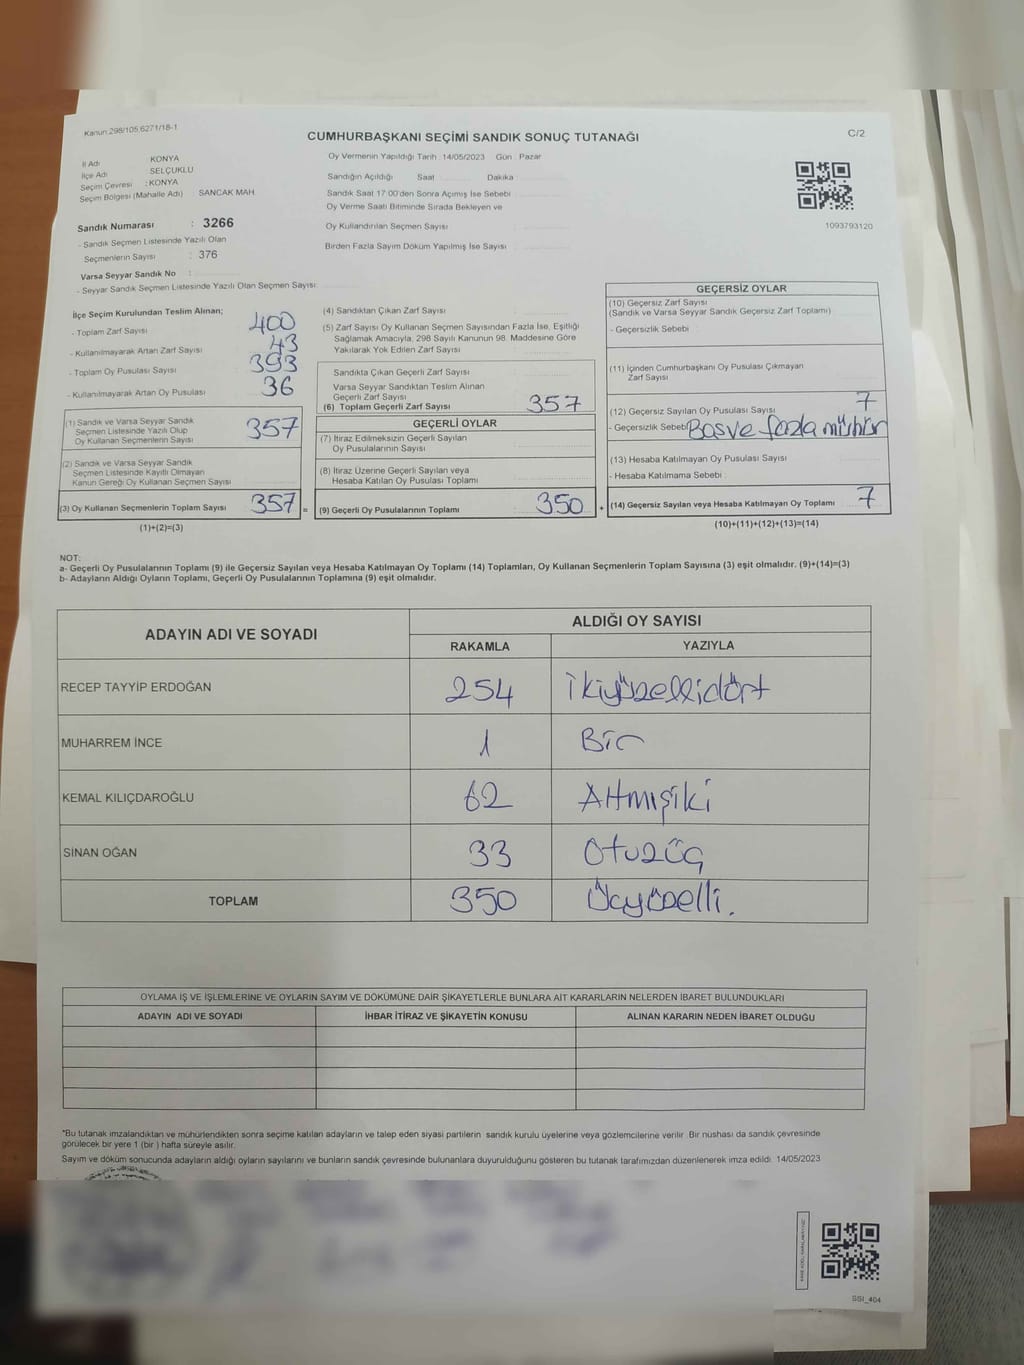 Kanun:298/105,6271/18-1
CUMHURBAŞKANI SEÇİMİ SANDIK SONUÇ TUTANAĞI
C/2
İl Adı KONYA
İlçe Adı SELÇUKLU
Seçim Çevresi : KONYA
Seçim Bölgesi (Mahalle Adı) : SANCAK MAH.
Sandık Numarası : 3266
- Sandık Seçmen Listesinde Yazılı Olan
Seçmenlerin Sayısı : 376
Varsa Seyyar Sandık No :
- Seyyar Sandık Seçmen Listesinde Yazılı Olan Seçmen Sayısı:
Oy Vermenin Yapıldığı Tarih : 14/05/2023 Gün : Pazar
Sandığın Açıldığı Saat Dakika
Sandık Saat 17:00'den Sonra Açımış İse Sebebi
Oy Verme Saati Bitiminde Sırada Bekleyen ve
Oy Kullandırılan Seçmen Sayısı
Birden Fazla Sayım Döküm Yapılmış İse Sayısı
1093793120
İlçe Seçim Kurulundan Teslim Alınan;
- Toplam Zarf Sayısı 400
- Kullanılmayarak Artan Zarf Sayısı 43
- Toplam Oy Pusulası Sayısı 393
- Kullanılmayarak Artan Oy Pusulası 36
(1) Sandık ve Varsa Seyyar Sandık
Seçmen Listesinde Yazılı Olup
Oy Kullanan Seçmenlerin Sayısı 357
(2) Sandık ve Varsa Seyyar Sandık
Seçmen Listesinde Kayıtlı Olmayan
Kanun Gereği Oy Kullanan Seçmen Sayısı
(3) Oy Kullanan Seçmenlerin Toplam Sayısı 357 =
(1)+(2)=(3)
(4) Sandıktan Çıkan Zarf Sayısı
(5) Zarf Sayısı Oy Kullanan Seçmen Sayısından Fazla İse, Eşitliği
Sağlamak Amacıyla, 298 Sayılı Kanunun 98. Maddesine Göre
Yakılarak Yok Edilen Zarf Sayısı
Sandıkta Çıkan Geçerli Zarf Sayısı
Varsa Seyyar Sandıktan Teslim Alınan
Geçerli Zarf Sayısı
(6) Toplam Geçerli Zarf Sayısı 357
GEÇERLİ OYLAR
(7) İtiraz Edilmeksizin Geçerli Sayılan
Oy Pusulalarının Sayısı
(8) İtiraz Üzerine Geçerli Sayılan veya
Hesaba Katılan Oy Pusulası Toplamı
(9) Geçerli Oy Pusulalarının Toplamı 350 +
GEÇERSİZ OYLAR
(10) Geçersiz Zarf Sayısı
(Sandık ve Varsa Seyyar Sandık Geçersiz Zarf Toplamı)
- Geçersizlik Sebebi
(11) İçinden Cumhurbaşkanı Oy Pusulası Çıkmayan
Zarf Sayısı
(12) Geçersiz Sayılan Oy Pusulası Sayısı 7
- Geçersizlik Sebebi Boş ve fazla mühür
(13) Hesaba Katılmayan Oy Pusulası Sayısı
- Hesaba Katılmama Sebebi
(14) Geçersiz Sayılan veya Hesaba Katılmayan Oy Toplamı 7
(10)+(11)+(12)+(13)=(14)
NOT:
a- Geçerli Oy Pusulalarının Toplamı (9) ile Geçersiz Sayılan veya Hesaba Katılmayan Oy Toplamı (14) Toplamları, Oy Kullanan Seçmenlerin Toplam Sayısına (3) eşit olmalıdır. (9)+(14)=(3)
b- Adayların Aldığı Oyların Toplamı, Geçerli Oy Pusulalarının Toplamına (9) eşit olmalıdır.
ADAYIN ADI VE SOYADI
ALDIĞI OY SAYISI
RAKAMLA YAZIYLA
RECEP TAYYİP ERDOĞAN 254 İkiyüzellidört
MUHARREM İNCE 1 Bir
KEMAL KILIÇDAROĞLU 62 Altmışiki
SİNAN OĞAN 33 Otuzüç
TOPLAM 350 Üçyüzelli.
OYLAMA İŞ VE İŞLEMLERİNE VE OYLARIN SAYIM VE DÖKÜMÜNE DAİR ŞİKAYETLERLE BUNLARA AİT KARARLARIN NELERDEN İBARET BULUNDUKLARI
ADAYIN ADI VE SOYADI İHBAR İTİRAZ VE ŞİKAYETİN KONUSU ALINAN KARARIN NEDEN İBARET OLDUĞU
*Bu tutanak imzalandıktan ve mühürlendikten sonra seçime katılan adayların ve talep eden siyasi partilerin sandık kurulu üyelerine veya gözlemcilerine verilir. Bir nushası da sandık çevresinde
görülecek bir yere 1 (bir ) hafta süreyle asılır.
Sayım ve döküm sonucunda adayların aldığı oyların sayılarını ve bunların sandık çevresinde bulunanlara duyurulduğunu gösteren bu tutanak tarafımızdan düzenlenerek imza edildi. 14/05/2023
SSI_404